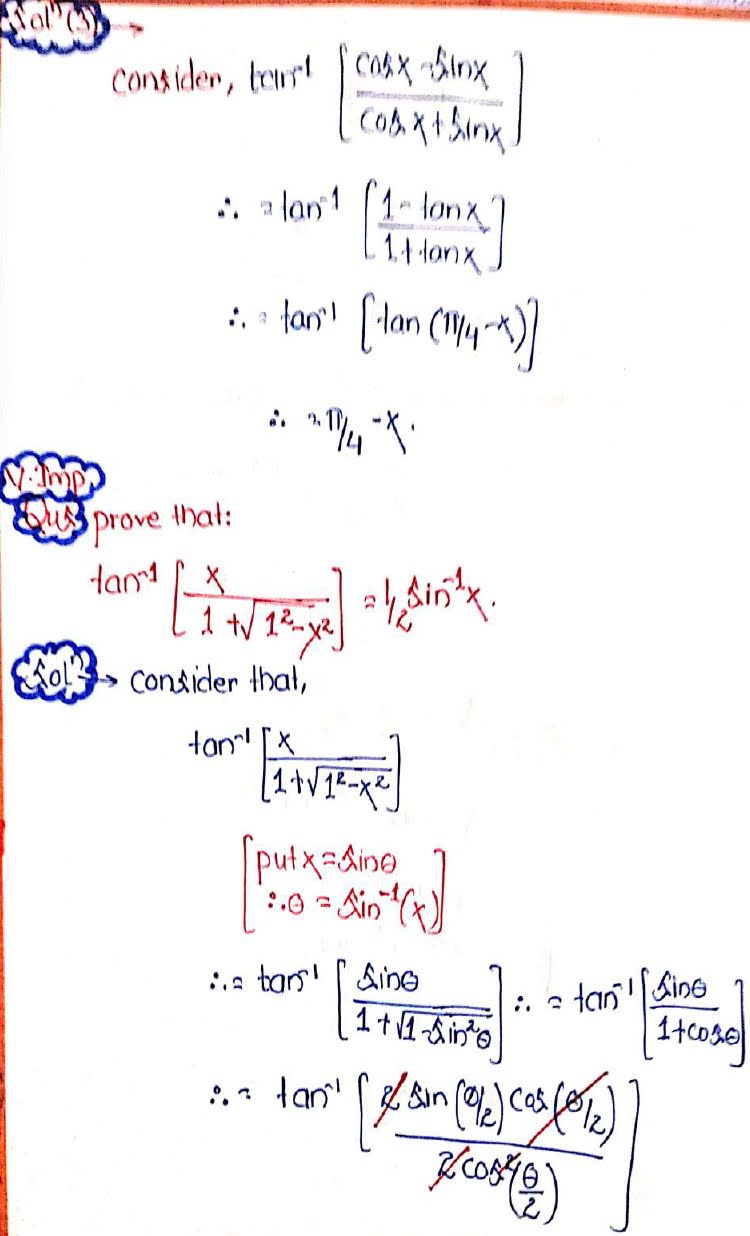 Solⁿ(3) →
consider, tan⁻¹ [cosx - sinx / cosx + sinx]
∴ = tan⁻¹ [1 - tanx / 1 + tanx]
∴ = tan⁻¹ [tan (π/4 - x)]
∴ = π/4 - x.
V. Imp.
Qus prove that:
tan⁻¹ [x / 1 + √1² - x²] = 1/2 sin⁻¹x.
Solⁿ → consider that,
tan⁻¹ [x / 1 + √1² - x²]
[put x = sinθ
∴ θ = sin⁻¹(x)]
∴ = tan⁻¹ [sinθ / 1 + √1 - sin²θ] ∴ = tan⁻¹ [sinθ / 1 + cosθ]
∴ = tan⁻¹ [2 sin (θ/2) cos (θ/2) / 2 cos² (θ/2)]